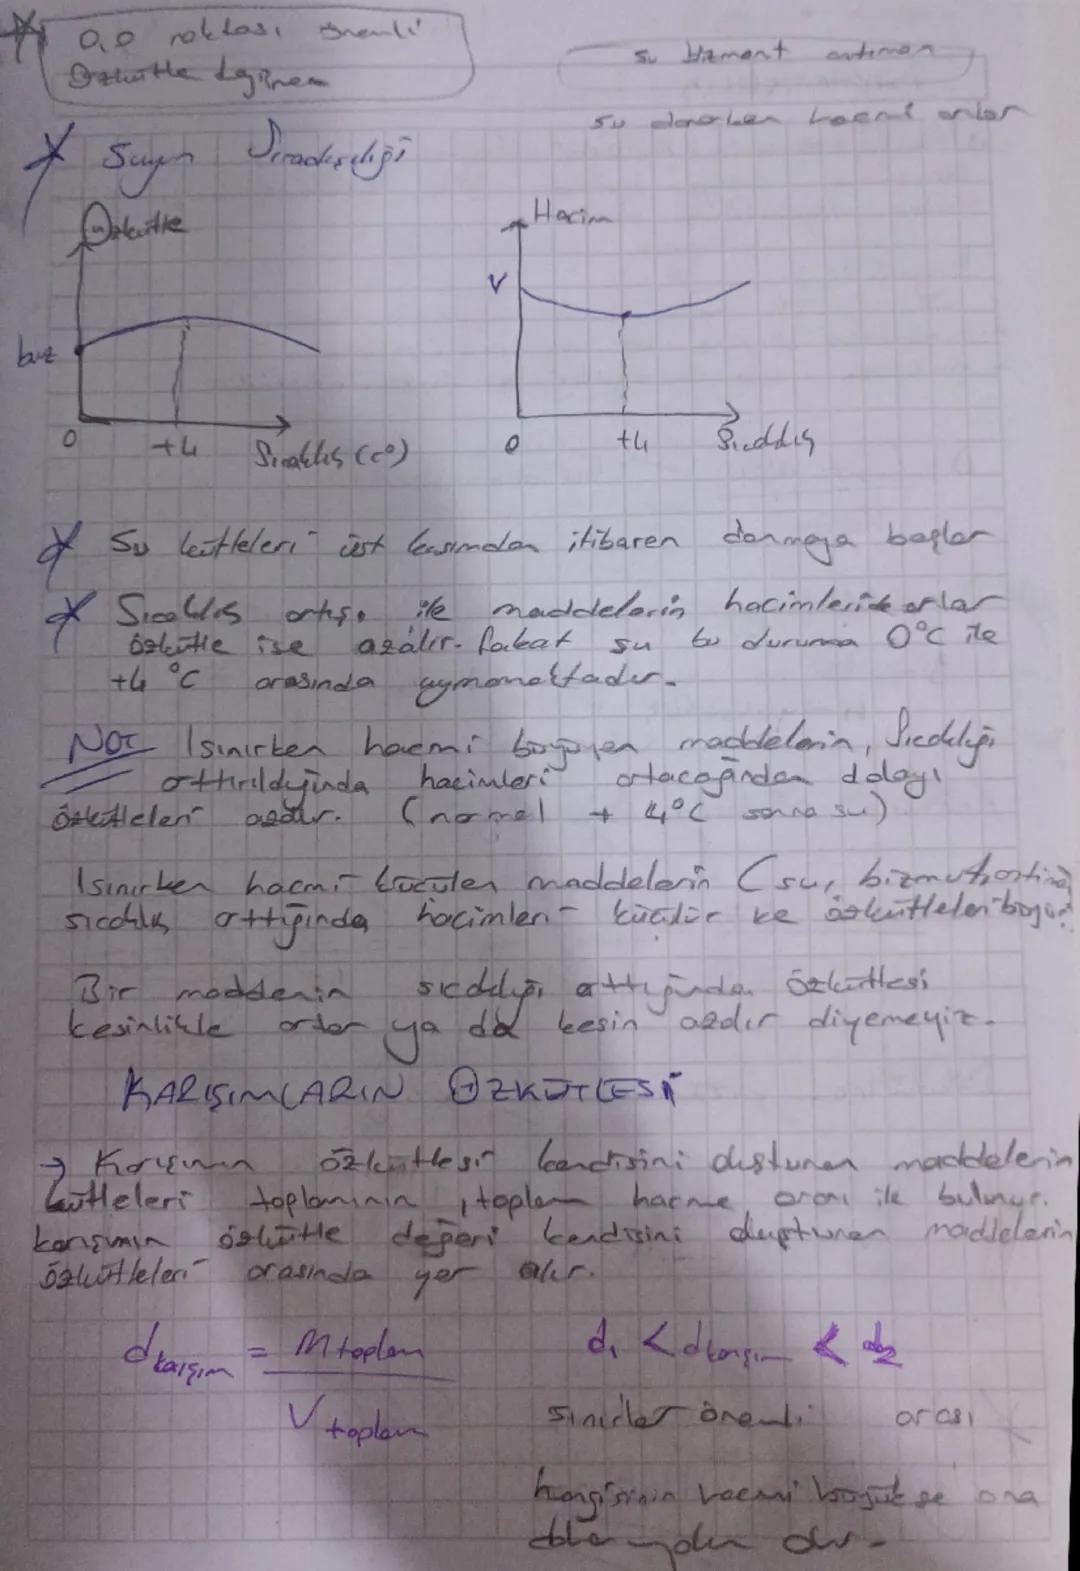 0,0 noktası önemli
Özkütle değişmez
su bizment antimon
su donarken hacmi artar
Suyun Sıradışılığı
Özkütle
Hacim
V
buz
0
+4
Sıcaklık (c°)
0
+4
Sıcaklık
Su kütleleri üst kısımdan itibaren donmaya başlar
Sıcaklık artışı ile maddelerin hacimleride artar
özkütle ise azalır. fakat su bu duruma 0°C ile
+4 °C arasında uymamaktadır.
NOT Isınırken hacmi büyüyen maddelerin, Sıcaklığı
arttırıldığında hacimleri artacağından dolayı
özkütleleri azalır. (normal + 4°C sonra su)
Isınırken hacmi küçülen maddelerin (su, bizmut,
sıcaklık arttığında hacimleri küçülür ve özkütleleri büyür
Bir maddenin sıcaklığı arttığında özkütlesi
kesinlikle artar ya da kesin azalır diyemeyiz.
KARIŞIMLARIN ÖZKÜTLESİ
→ Karışımın özkütlesi kendisini oluşturan maddelerin
kütleleri toplamının, toplam hacme oranı ile bulunur.
karışımın özkütle değeri kendisini oluşturan maddelerin
özkütleleri arasında yer alır.
d karışım = M toplam
V toplam
d1 < d karışım < d2
sınırlar önemli arası
hangisinin hacmi büyükse ona
daha yakın olur.